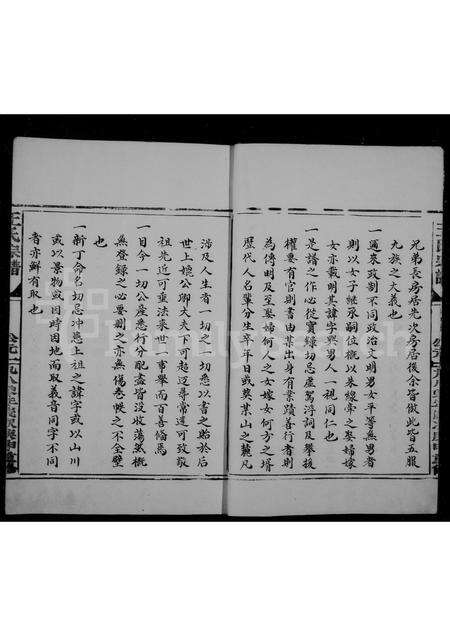 兄弟長房居先次房居後餘皆倣此皆五服
九族之大義也
一適來政割不同政治文明男女平等無男者
則以女子繼承嗣位概以朱線牽之娶婦嫁
女亦載明其諱字與男人一視同仁也
一是譜之作必從實錄切忌虛寫浮詞及攀援
權要有官則書由某出身有業蹟善行者則
為傳明及至娶婦何人之女嫁女何方之壻
歷代人名輩分生卒年日或葬某山之麓凡
涉及人生者一切之一切悉以書之貽於後
世上媲公卿大夫下可起迈尋常遠可致敬
祖先近可垂法來世一事舉而百善備焉
一曰今一切公產悉行分配盡皆沒收蕩然概
無登錄之必要刪之亦無傷卷帙之不全璧
也
一新丁命名切忌冲惹上祖之諱字或以山川
或以景物或因時因地而取義音同字不同
者亦鮮有取也
王氏宗譜